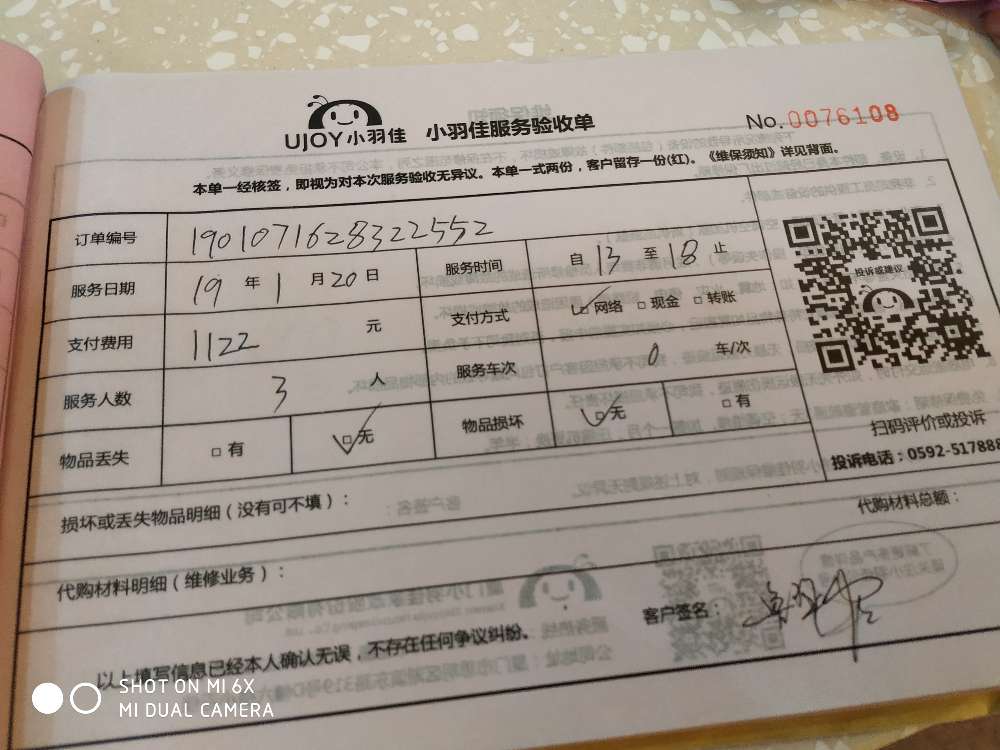 UJOY小羽佳 小羽佳服务验收单 No.0076108
本单一经核签，即视为对本次服务验收无异议。本单一式两份，客户留存一份(红)。《维保须知》详见背面。
订单编号 1901071628322552
服务日期 19 年 1 月 20 日 服务时间 自 13 至 18 止
支付费用 1122 元 支付方式 ☑网络 □现金 □转账
服务人数 3 人 服务车次 0 车/次
物品丢失 □有 ☑无 物品损坏 ☑无 □有
投诉或建议
扫码评价或投诉
投诉电话：0592-517888
损坏或丢失物品明细（没有可不填）：
代购材料总额：
代购材料明细（维修业务）：
客户签名：
以上填写信息已经本人确认无误，不存在任何争议纠纷。
SHOT ON MI 6X
MI DUAL CAMERA